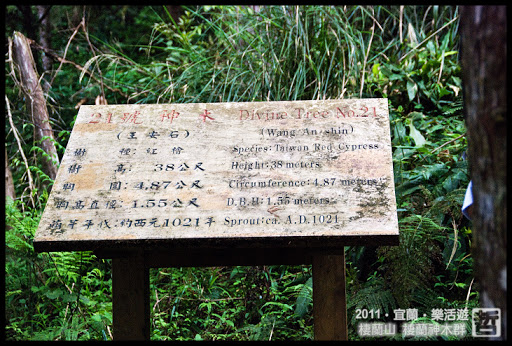 21號神木 Divine Tree No.21
(王安石) (Wang An-shin)
樹種:紅檜 Species: Taiwan Red Cypress
樹高: 38公尺 Height:38 meters
胸圍:4.87公尺 Circumference:4.87 meters
胸高直徑:1.55公尺 D.B.H:1.55 meters
萌芽年代:約西元1021年 Sprout:ca. A.D.1021
2011·宜蘭·樂活遊
棲蘭山 棲蘭神木群 哲